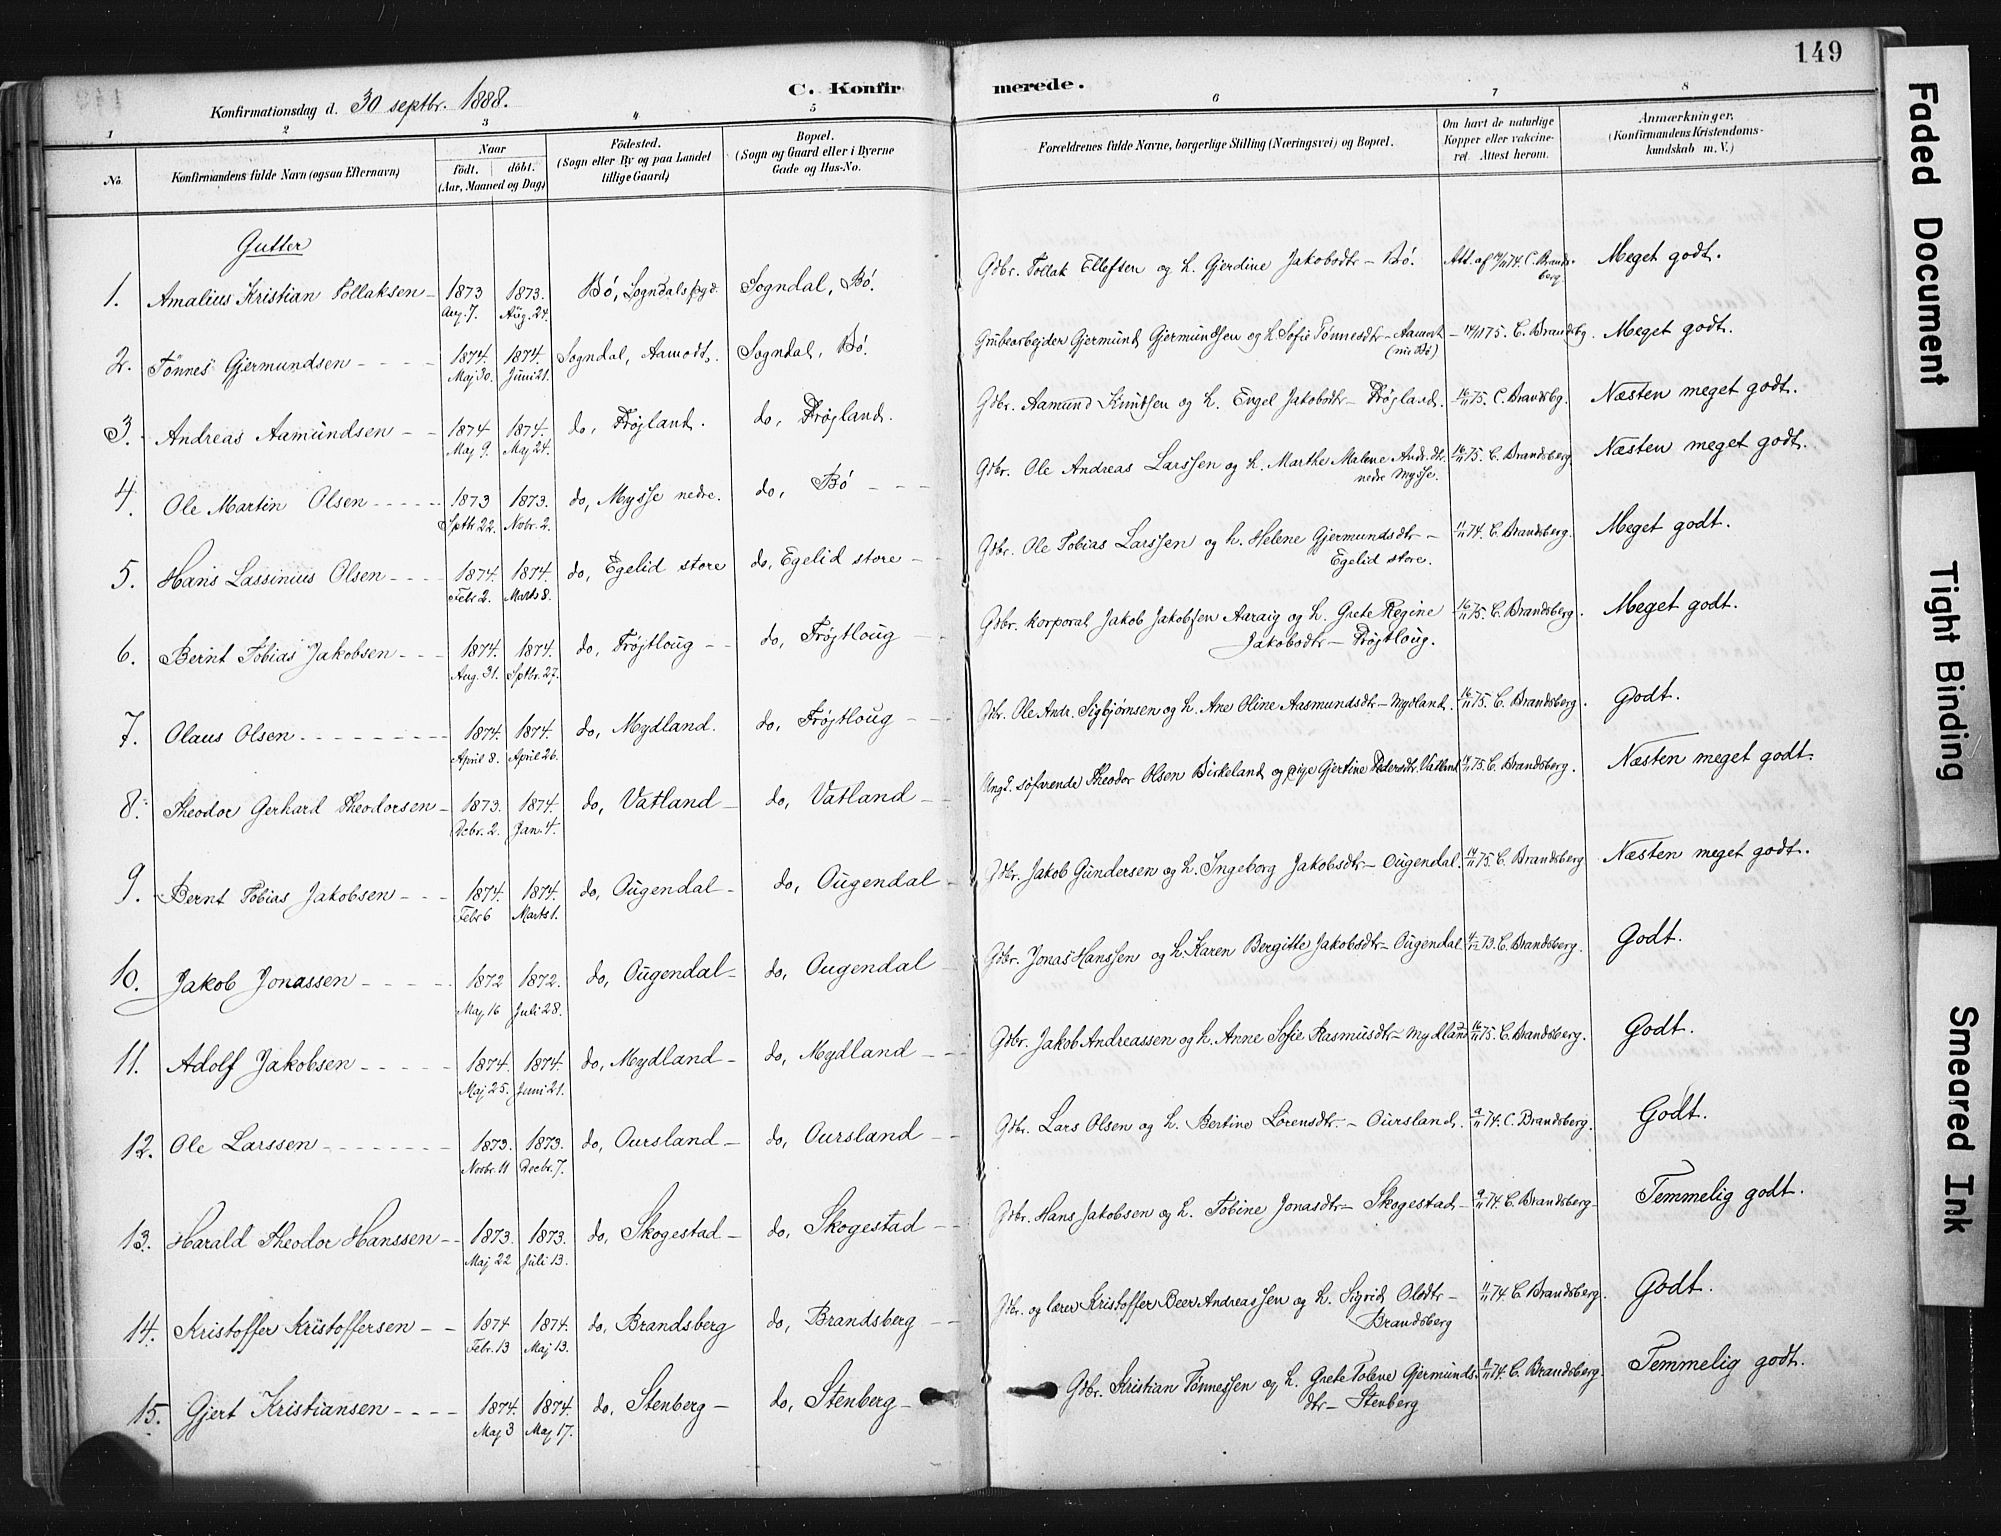 149
Konfirmationsdag d. 30 septbr. 1888.
C. Konfirmerede.
1 2 3 4 5 6 7 8
No.
Konfirmandens fulde Navn (ogsaa Efternavn)
Naar
födt. döbt.
(Aar, Maaned og Dag)
Födested.
(Sogn eller By og paa Landet
tillige Gaard)
Bopæl.
(Sogn og Gaard eller i Byerne
Gade og Hus-No.
Forældrenes fulde Navne, borgerlige Stilling (Næringsvei) og Bopæl.
Om havt de naturlige
Kopper eller vakcine-
ret. Attest herom.
Anmærkninger.
(Konfirmandens Kristendoms-
kundskab m. V.)
Gutter
1. Amalius Kristian Tollaksen 1873 Aug. 7. 1873. Aug. 24. Bø, Sogndals sogn Sogndal, Bø. Gdbr. Tollak Ellefsen og h. Gjerdine Jakobsdtr – Bø. Att. af 74. C. Brandsberg Meget godt.
2. Tønnes Gjermundsen 1874. Maj 30. 1874. Juni 21. Sogndal, Aamodt. Sogndal, Bø. Grubearbejder Gjermund Gjermundsen og h. Sofie Tønnesdtr – Aamodt (nu Bø) 75. C. Brandsbg. Meget godt.
3. Andreas Aamundsen 1874 Maj 9. 1874. Maj 24. do, Frøjland. do, Frøjland. Gdbr. Aamund Knudsen og h. Engel Jakobsdtr – Frøjland. 16/11 75. C. Brandsbg. Næsten meget godt.
4. Ole Martin Olsen 1873 Septb 22. 1873. Nobr. 2. do, Mysse nedre. do, Bø Gdbr. Ole Andreas Larssen og h. Marthe Malene Andr.dtr. nedre Mysse. 16/11 75. C. Brandsberg Næsten meget godt.
5. Hans Lassinius Olsen 1874. Febr 2. 1874. Marts 8. do, Egelid store do, Egelid store Gdbr. Ole Tobias Larssen og h. Helene Gjermundsdtr – Egelid store. 11/11 74. C. Brandsberg. Meget godt.
6. Bernt Tobias Jakobsen 1874. Aug. 31. 1874. Septbr. 27. do, Frøjtloug do, Frøjtloug Gdbr. korporal Jakob Jakobsen Aaraig og h. Grete Regine Jakobsdtr – Frøjtloug. 16/11 75. C. Brandsberg. Meget godt.
7. Olaus Olsen 1874. April 8. 1874. April 26. do, Mydland. do, Frøjtloug Gdbr. Ole Andr. Sigbjørnsen og h. Ane Oline Aasmundsdtr – Mydland. 16/11 75. C. Brandsberg. Godt.
8. Theodor Gerhard Theodorsen 1873. Decbr. 2. 1874. Jan. 4. do, Vatland do, Vatland Ungk. søfarende Theodor Olsen Birkeland og pige Gjertine Pedersdtr. Vatland 75. C. Brandsberg. Næsten meget godt.
9. Bernt Tobias Jakobsen 1874. Febr 6 1874. Marts 1. do, Ougendal do, Ougendal Gdbr. Jakob Gundersen og h. Ingeborg Jakobsdtr – Ougendal. 75. C. Brandsberg Næsten meget godt.
10. Jakob Jonassen 1872 Maj 16 1872. Juli 28. do, Ougendal do, Ougendal Gdbr. Jonas Hanssen og h. Karen Bergitte Jakobsdtr – Ougendal 73. C. Brandsberg. Godt.
11. Adolf Jakobsen 1874. Maj 25. 1874. Juni 21. do, Mydland do, Mydland Gdbr. Jakob Andreassen og h. Anne Sofie Rasmusdtr – Mydland 16/11 75. C. Brandsberg. Godt.
12. Ole Larssen 1873. Novbr. 11 1873. Decbr. 7. do, Oursland do, Oursland Gdbr. Lars Olsen og h. Bertine Lorensdtr. – Oursland. 9/11 74. C. Brandsberg. Godt.
13. Harald Theodor Hanssen 1873. Maj 22 1873. Juli 13. do, Skogestad do, Skogestad Gdbr. Hans Jakobsen og h. Tobine Jonasdtr – Skogestad 9/11 74. C. Brandsberg Temmelig godt.
14. Kristoffer Kristoffersen 1874 Febr. 13 1874. Maj 13. do, Brandsberg do, Brandsberg Gdbr. og lærer Kristoffer Beer Andreassen og h. Sigrid Olsdtr – Brandsberg 11/11 74 C. Brandsberg. Godt.
15. Gjert Kristiansen 1874. Maj 3 1874. Maj 17. do, Stenberg do, Stenberg Gdbr. Kristian Tønnessen og h. Grete Tolene Gjermundsdtr – Stenberg 74. C. Brandsberg Temmelig godt.
Faded Document
Tight Binding
Smeared Ink